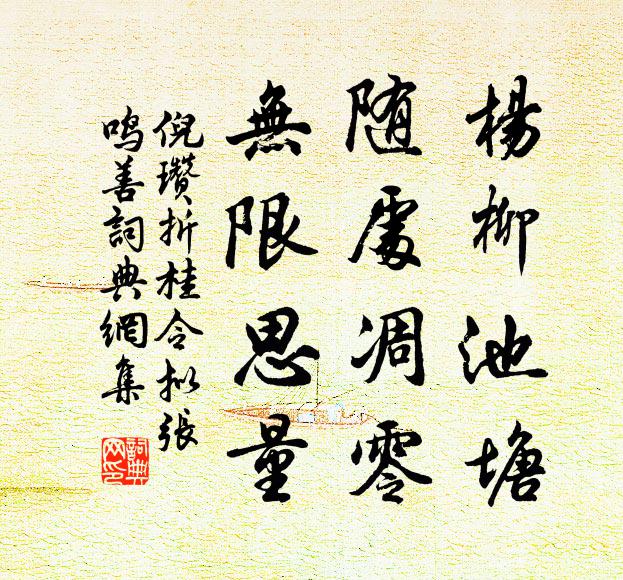 楊柳池塘
随處凋零
無限思量
倪瓚折桂令拟張
鸣善詞典網集
詞典网印